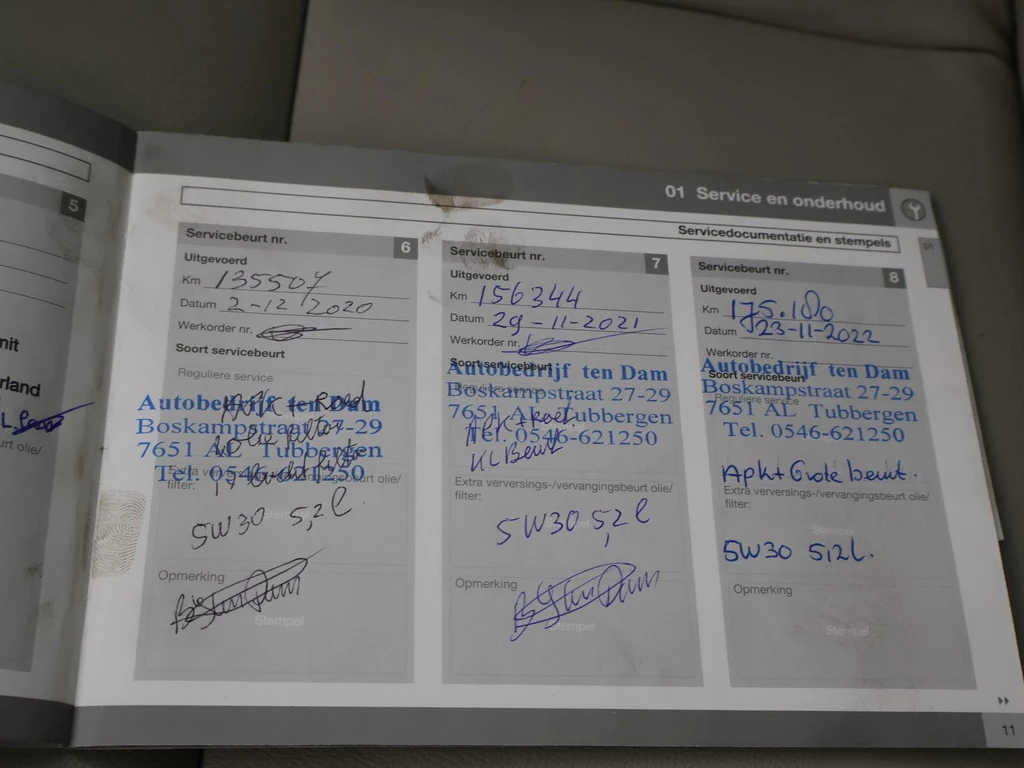 5
nit
rland
L
rt olie/
01 Service en onderhoud
Servicedocumentatie en stempels
01
Servicebeurt nr. 6
Uitgevoerd
Km 135507
Datum 2-12/2020
Werkorder nr.
Soort servicebeurt
Reguliere service
APK +
Autobedrijf ten Dam
Boskampstraat 27-29
olie filter
7651 AL Tubbergen
Tel. 0546-621250
Extra verversings-/vervangingsbeurt olie/
filter:
5W30 5,2l
Stempel
Opmerking
Stempel
Servicebeurt nr. 7
Uitgevoerd
Km 156344
Datum 29-11-2021
Werkorder nr.
Soort servicebeurt
Autobedrijf ten Dam
Reguliere service
Boskampstraat 27-29
7651 AL Tubbergen
APK + Roet
Tel. 0546-621250
KL Beurt
Extra verversings-/vervangingsbeurt olie/
filter:
5W30 5,2l
Stempel
Opmerking
Stempel
Servicebeurt nr. 8
Uitgevoerd
Km 175.180
Datum 23-11-2022
Werkorder nr.
Autobedrijf ten Dam
Soort servicebeurt
Boskampstraat 27-29
Reguliere service
7651 AL Tubbergen
Tel. 0546-621250
Apk + Grote beurt.
Extra verversings-/vervangingsbeurt olie/
filter:
Stempel
5W30 5,2l.
Opmerking
Stempel
11